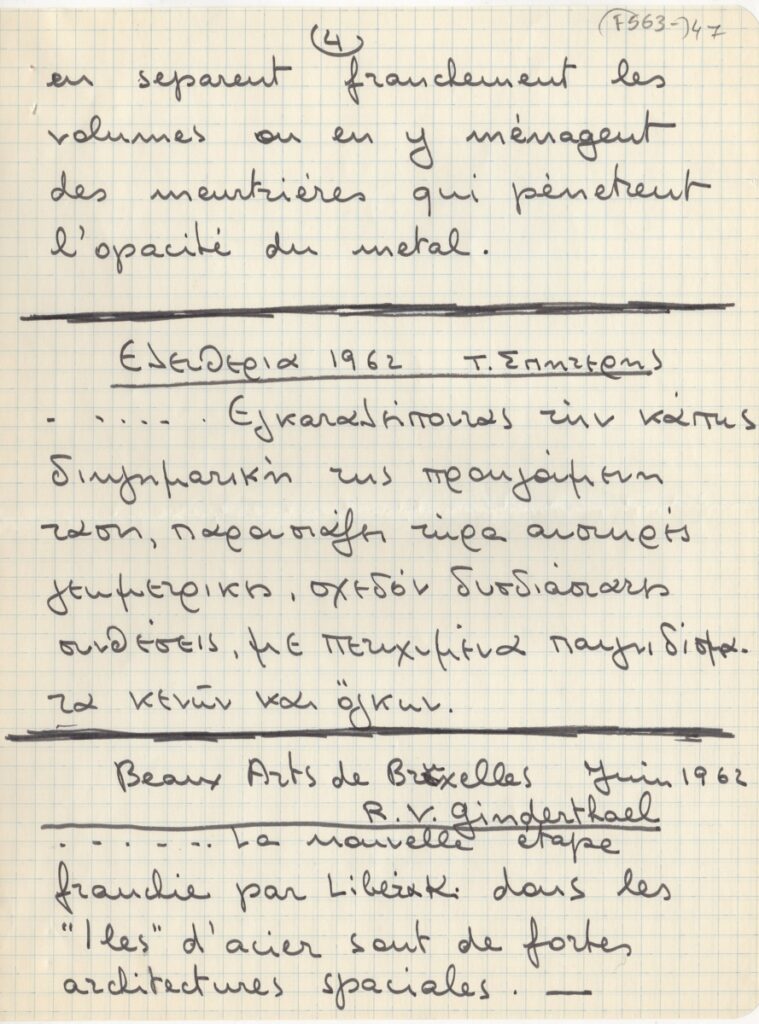 (F563-)47
(4)
en separent franchement les
volumes ou en y ménagent
des meurtriéres qui pènetrent
l'opacité du metal.
Ελευθερια 1962 Τ. Σπητερης
. . . . . . Εγκαταλείποντας την κάπως
διηγηματική της προηγόυμενη
ταση, παρουσιάζει τώρα αυστηρές
γεωμετρικες, σχεδόν δυσδιάστατες
συνθέσεις, με πετυχημένα παιγνιδίσμα-
τα κενών και όγκων.
Beaux Arts de Bruxelles Juin 1962
R. V. Ginderthael
. . . . . . . La nouvelle étape
franchie par Liberaki dans les
"Iles" d'acier sont de fortes
architectures spaciales. —